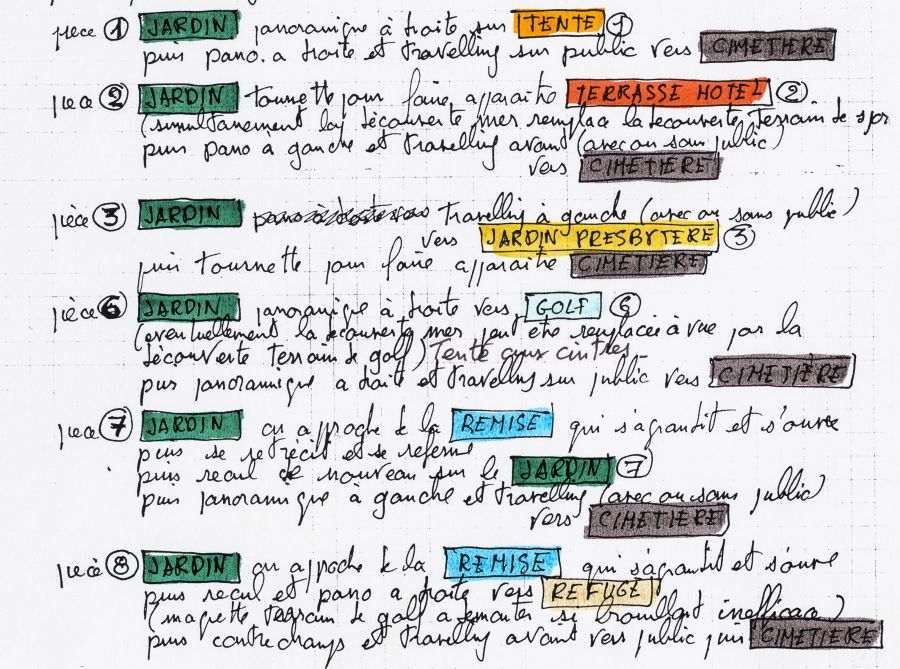 pièce ① JARDIN panoramique à droite sur TENTE ①
puis pano. a droite et travelling sur public vers CIMETIERE
pièce ② JARDIN tournette pour faire apparaitre TERRASSE HOTEL ②
(simultanement la découverte mer remplace la découverte terrain de
puis pano a gauche et travelling avant (avec ou sans public)
vers CIMETIERE
pièce ③ JARDIN travelling à gauche (avec ou sans public)
vers JARDIN PRESBYTERE ③
puis tournette pour faire apparaitre CIMETIERE
pièce ⑥ JARDIN panoramique à droite vers GOLF ⑥
(eventuellement la découverte mer peut etre remplacée à vue par la
découverte terrain de golf) Tente aux cintres -
puis panoramique a droite et travelling sur public vers CIMETIÈRE
pièce ⑦ JARDIN on approche de la REMISE qui s'agrandit et s'ouvre
puis se retrécit et se referme
puis recul de nouveau sur le JARDIN ⑦
puis panoramique a gauche et travelling (avec ou sans public)
vers CIMETIERE
pièce ⑧ JARDIN on approche de la REMISE qui s'agrandit et s'ouvre
puis recul et pano a droite vers REFUGE
(maquette terrain de golf a emonter se brouillant inefficace)
puis contrechamps et travelling avant vers public puis CIMETIERE